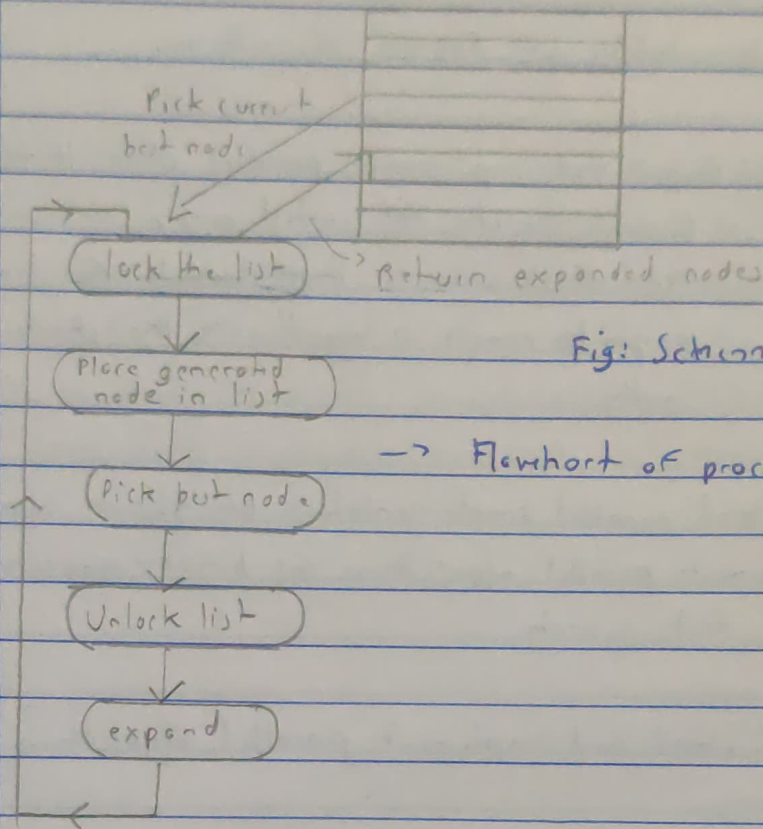 Pick current
best node
lock the list
Return expanded nodes
Fig: Schem
Place generated
node in list
→ Flowchart of proc
Pick best node
Unlock list
expand